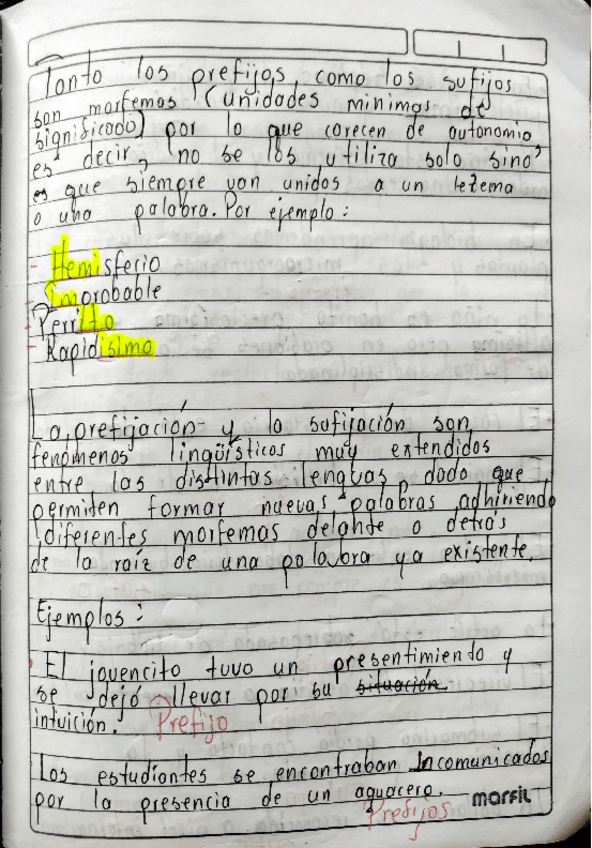 Tanto los prefijos, como los sufijos
son morfemas (unidades minimas de
significado) por lo que carecen de autonomia
es decir, no se los utiliza solo sino
es que siempre van unidos a un lexema
o una palabra. Por ejemplo:
- Hemisferio
- Improbable
- Perrito
- Rapidísimo
La prefijación y la sufijación son
fenómenos lingüísticos muy extendidos
entre las distintas lenguas, dado que
permiten formar nuevas palabras adhiriendo
diferentes morfemas delante o detrás
de la raíz de una palabra ya existente.
Ejemplos:
El jovencito tuvo un presentimiento y
se dejó llevar por su situación
intuición. Prefijo
Los estudiantes se encontraban Incomunicados
por la presencia de un aguacero.
Prefijos marfil